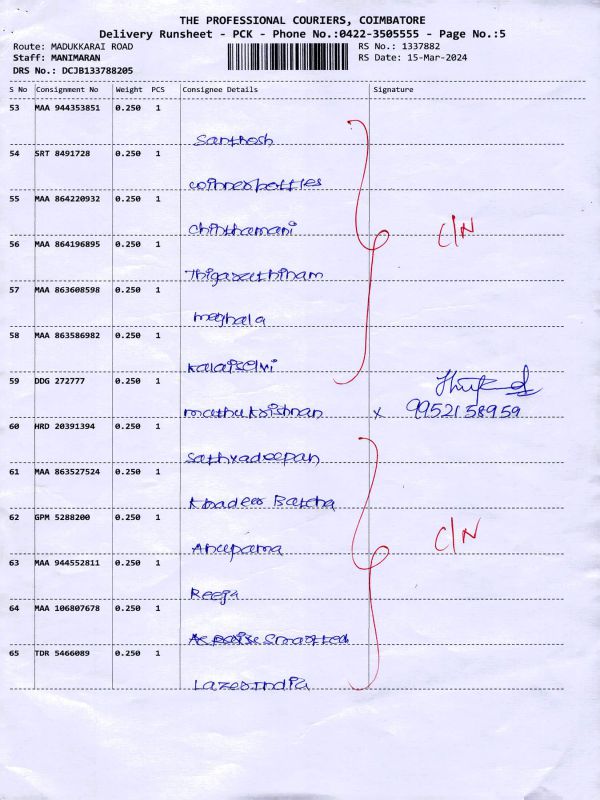 THE PROFESSIONAL COURIERS, COIMBATORE
Delivery Runsheet - PCK - Phone No.:0422-3505555 - Page No.:5
Route: MADUKKARAI ROAD RS No.: 1337882
Staff: MANIMARAN RS Date: 15-Mar-2024
DRS No.: DCJB133788205
S No Consignment No Weight PCS Consignee Details Signature
53 MAA 944353851 0.250 1
Santhosh
54 SRT 8491728 0.250 1
55 MAA 864220932 0.250 1
Chinthamani
C/N
56 MAA 864196895 0.250 1
57 MAA 863608598 0.250 1
meghala
58 MAA 863586982 0.250 1
Kalaiselvi
59 DDG 272777 0.250 1
muthukrishnan x 9952158959
60 HRD 20391394 0.250 1
Sathyadeepan
61 MAA 863527524 0.250 1
Khadeer Batcha
62 GPM 5288200 0.250 1
Anupama
C/N
63 MAA 944552811 0.250 1
Reeja
64 MAA 106807678 0.250 1
65 TDR 5466089 0.250 1
Lazer India